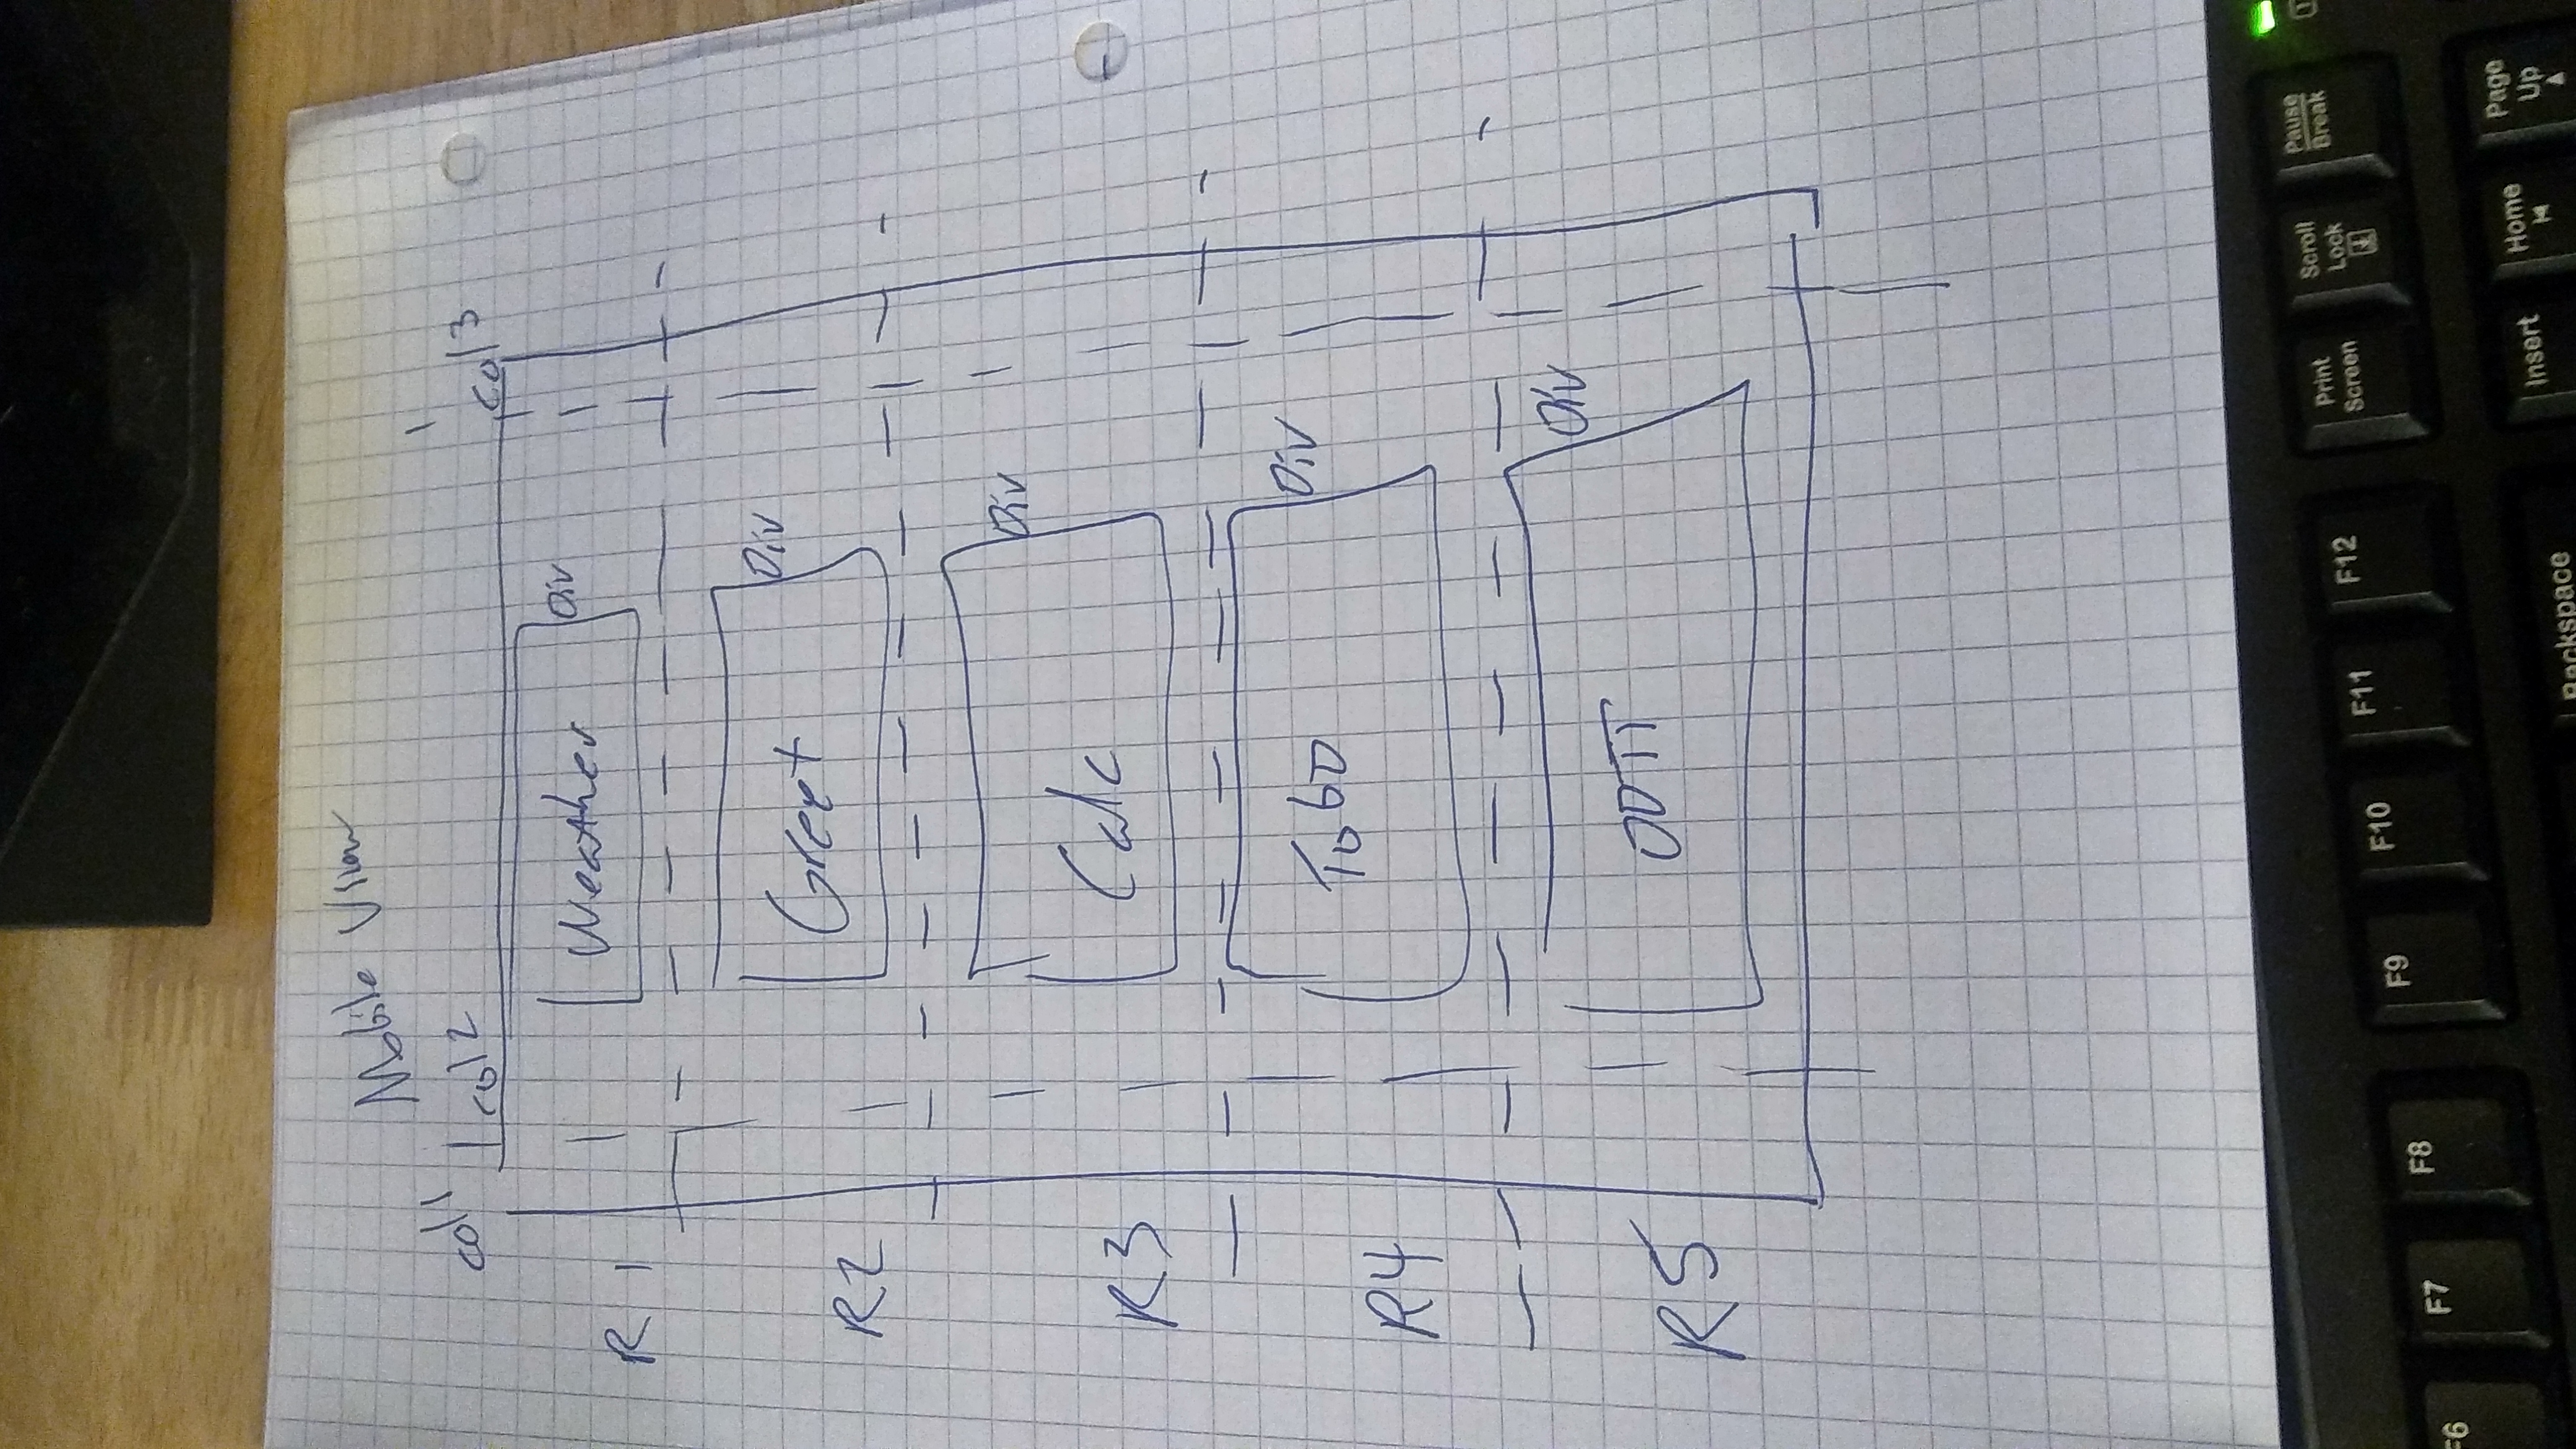 Mobile View
col 1
col 2
col 3
Weather
Div
R 1
Greet
Div
R2
Calc
Div
R3
Div
R4
Div
R5
F6
F7
F8
F9
F10
F11
F12
Print
Screen
Scroll
Lock
Pause
Break
Backspace
Insert
Home
Page
Up